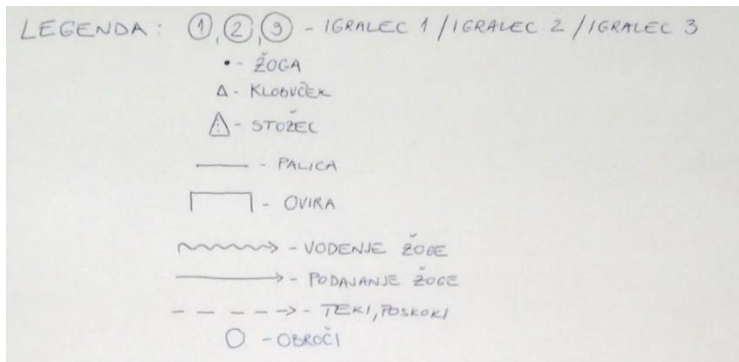 LEGENDA: 1, 2, 3 - IGRALEC 1 / IGRALEC 2 / IGRALEC 3
- ŽOGA
- KLOBUČEK
- STOŽEC
- PALICA
- OVIRA
- VODENJE ŽOGE
- PODAJANJE ŽOGE
- TEKI, POSKOKI
- OBROČI